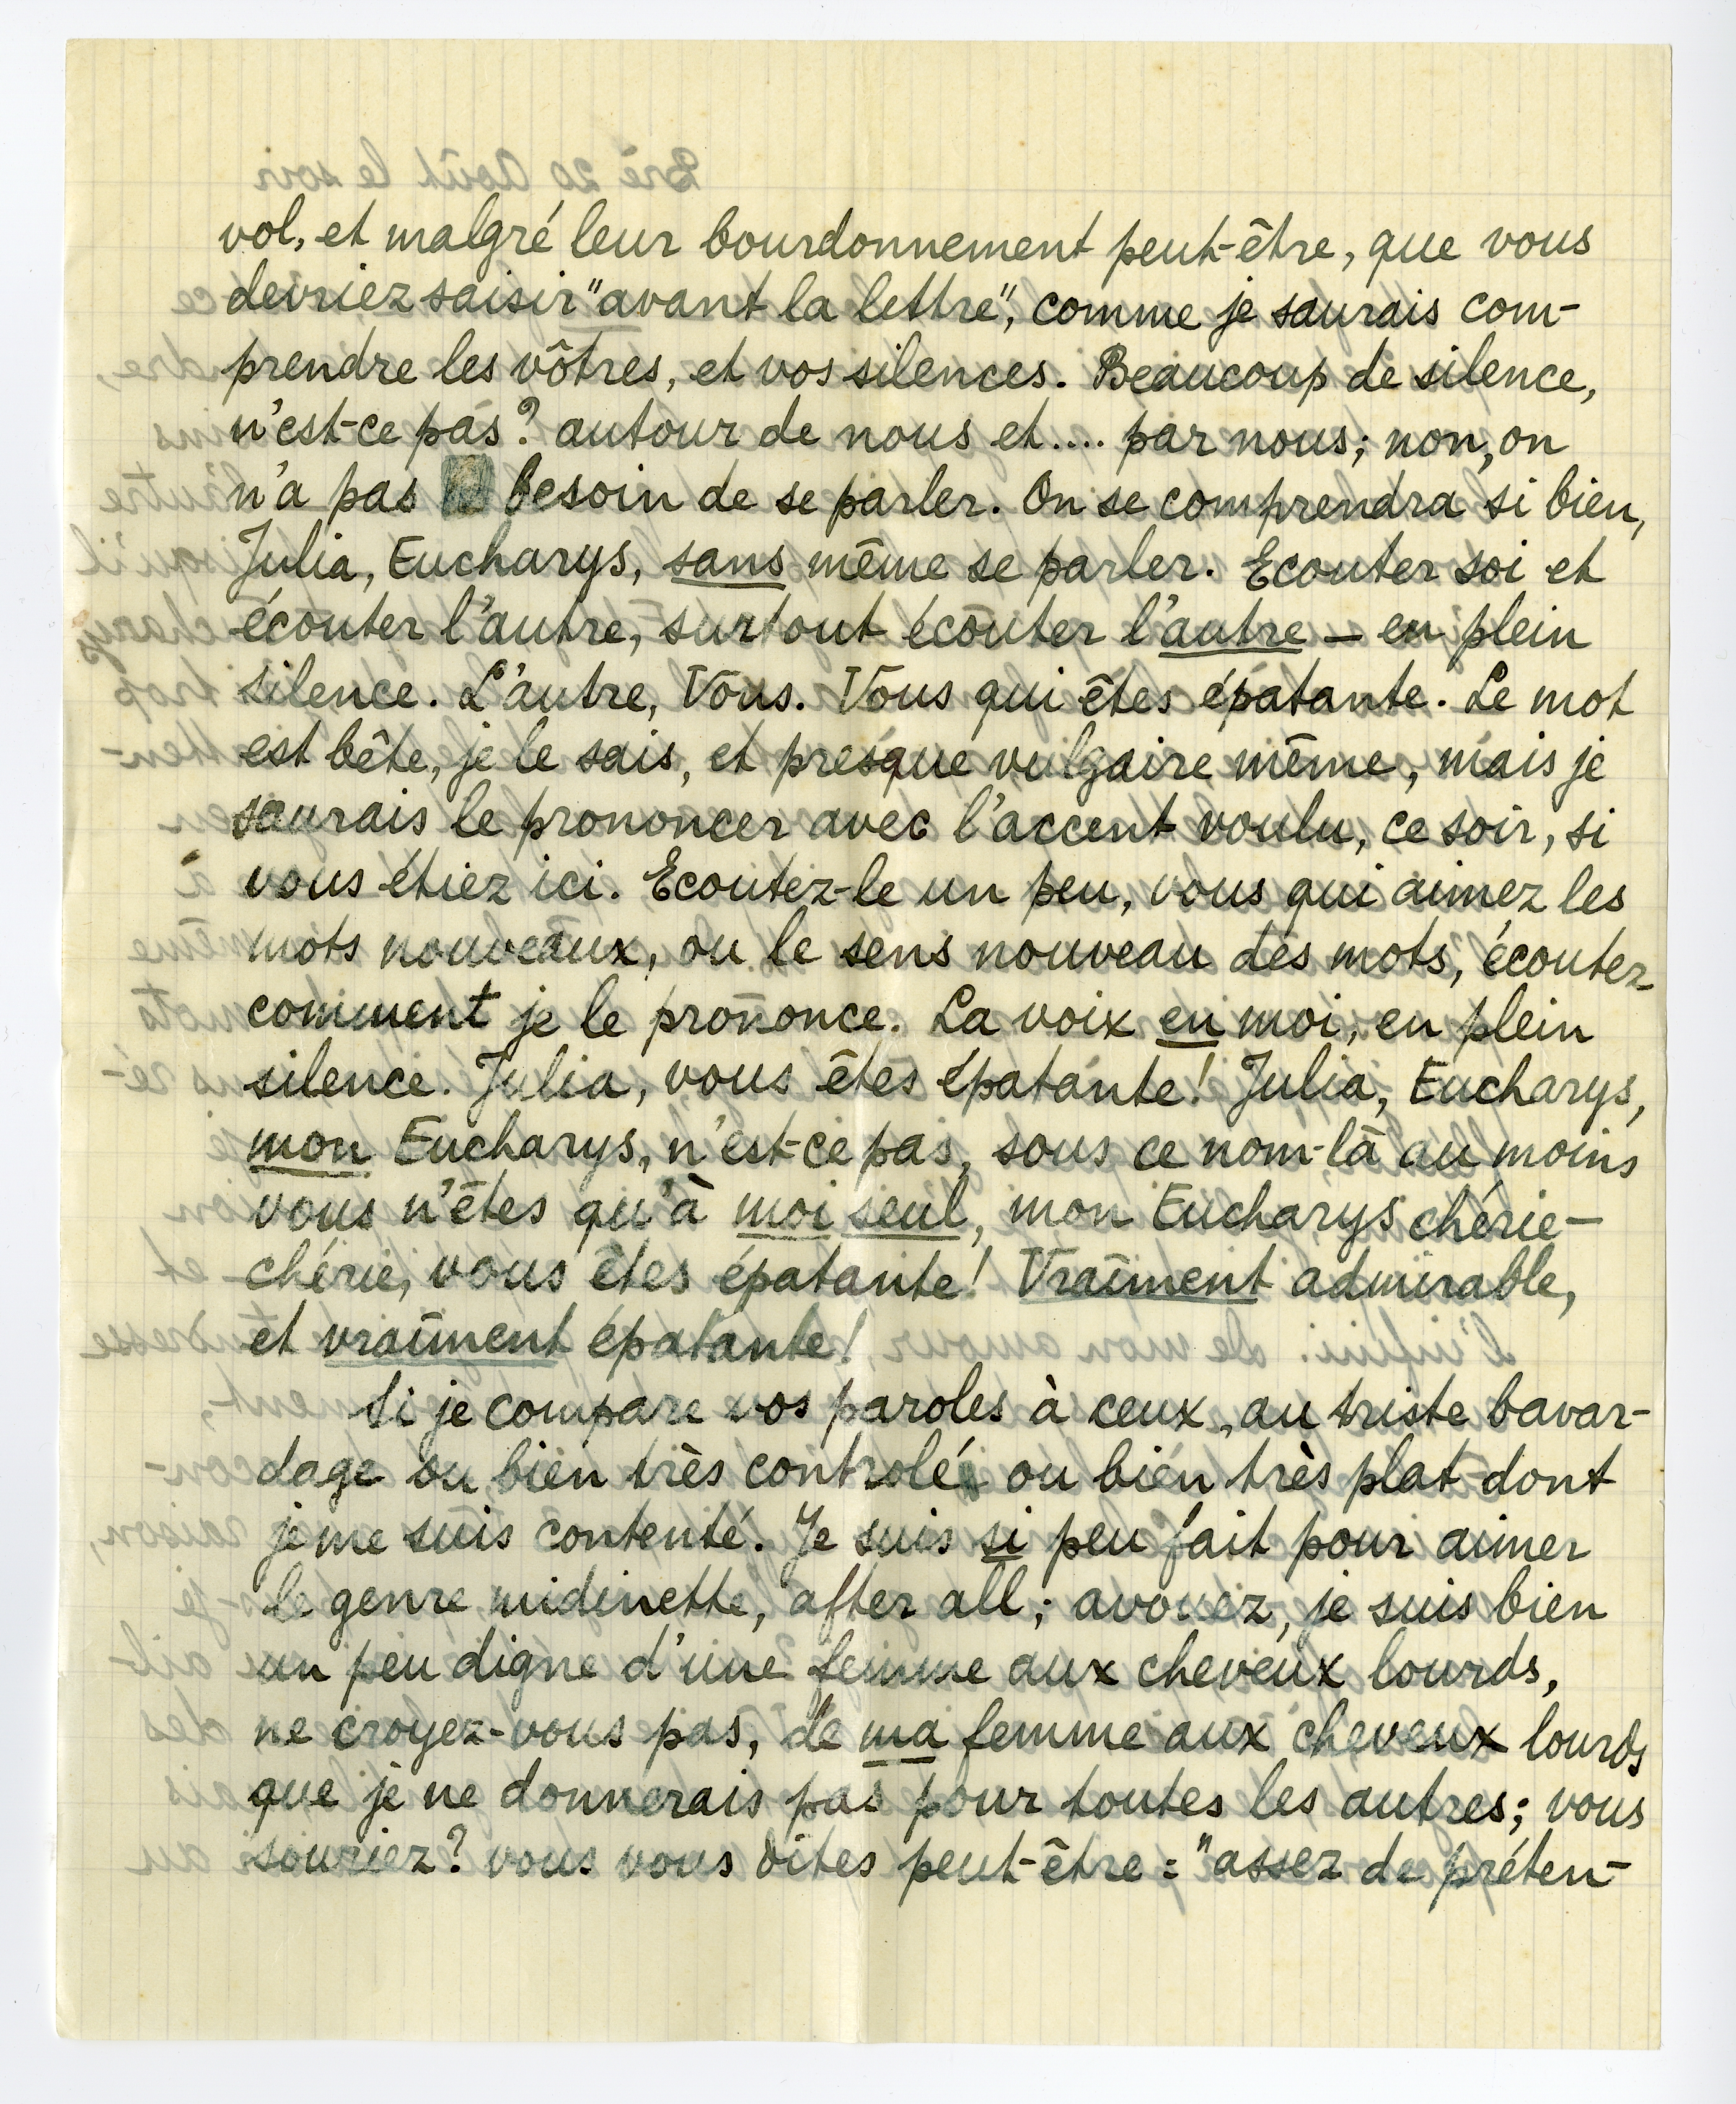 vol, et malgré leur bourdonnement peut-être, que vous
devriez saisir "avant la lettre", comme je saurais com-
prendre les vôtres, et vos silences. Beaucoup de silence,
n'est-ce pas? autour de nous et.... par nous; non, on
n'a pas besoin de se parler. On se comprendra si bien,
Julia, Eucharys, sans même se parler. Ecouter soi et
écouter l'autre, surtout écouter l'autre — en plein
silence. L'autre, Vous. Vous qui êtes épatante. Le mot
est bête, je le sais, et presque vulgaire même, mais je
saurais le prononcer avec l'accent voulu, ce soir, si
vous étiez ici. Ecoutez-le un peu, vous qui aimez les
mots nouveaux, ou le sens nouveau des mots, écoutez
comment je le prononce. La voix en moi, en plein
silence. Julia, vous êtes épatante! Julia, Eucharys,
mon Eucharys, n'est-ce pas, sous ce nom-là au moins
vous n'êtes qu'à moi seul, mon Eucharys chérie-
chérie, vous êtes épatante! Vraiment admirable,
et vraiment épatante!
Si je compare vos paroles à ceux, au triste bavar-
dage ou bien très controlé ou bien très plat dont
je me suis contenté. Je suis si peu fait pour aimer
le genre midinette, after all; avouez, je suis bien
un peu digne d'une femme aux cheveux lourds,
ne croyez-vous pas, de ma femme aux cheveux lourds
que je ne donnerais pas pour toutes les autres; vous
souriez? vous vous dites peut-être: "assez de préten-